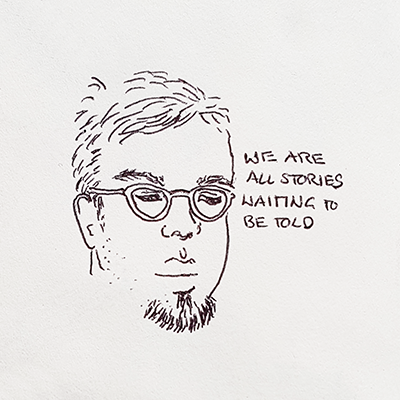 WE ARE
ALL STORIES
WAITING TO
BE TOLD